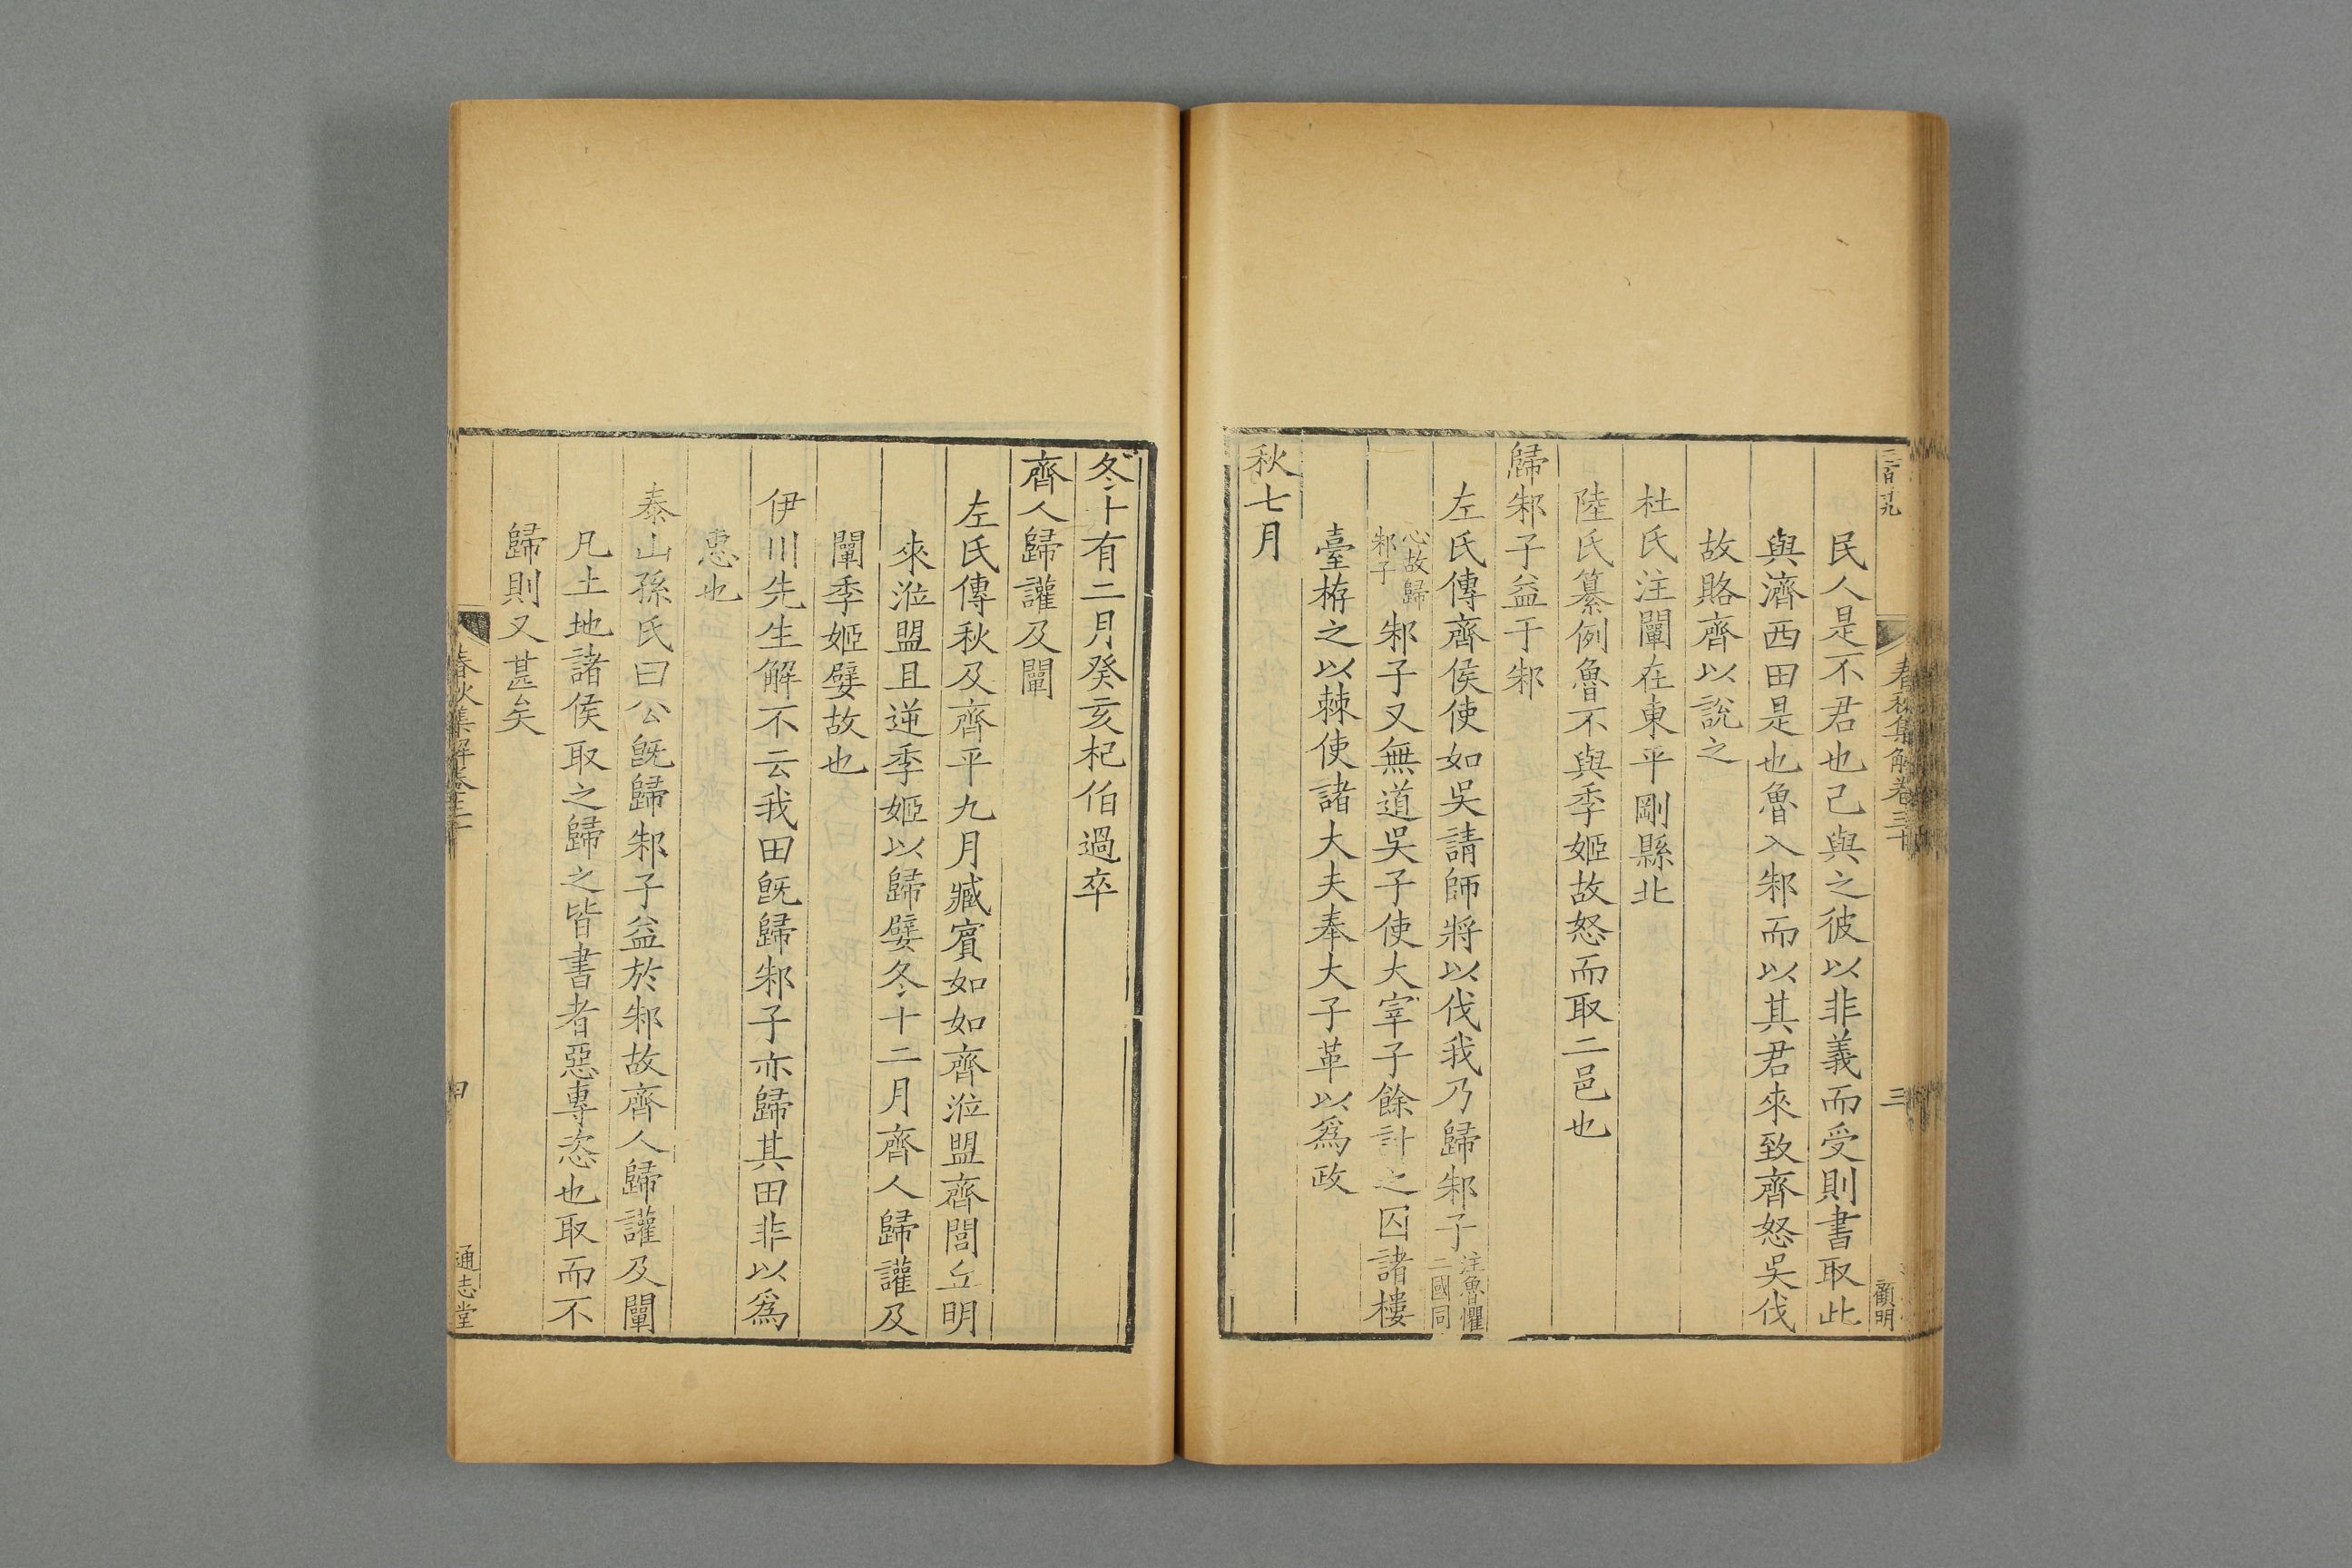 春秋集解卷三十
三
顧明
民人是不君也己與之彼以非義而受則書取此
與濟西田是也魯入邾而以其君來致齊怒吳伐
故賂齊以說之
杜氏注闡在東平剛縣北
陸氏纂例魯不與季姬故怒而取二邑也
歸邾子益于邾
左氏傳齊侯使如吳請師將以伐我乃歸邾子注魯懼二國同
心故歸邾子邾子又無道吳子使大宰子餘計之囚諸樓
臺栫之以棘使諸大夫奉大子革以爲政
秋七月
冬十有二月癸亥杞伯過卒
齊人歸讙及闡
左氏傳秋及齊平九月臧賓如如齊涖盟齊閭丘明
來涖盟且逆季姬以歸嬖冬十二月齊人歸讙及
闡季姬嬖故也
伊川先生解不云我田旣歸邾子亦歸其田非以爲
惠也
泰山孫氏曰公旣歸邾子益於邾故齊人歸讙及闡
凡土地諸侯取之歸之皆書者惡專恣也取而不
歸則又甚矣
春秋集解卷三十
通志堂